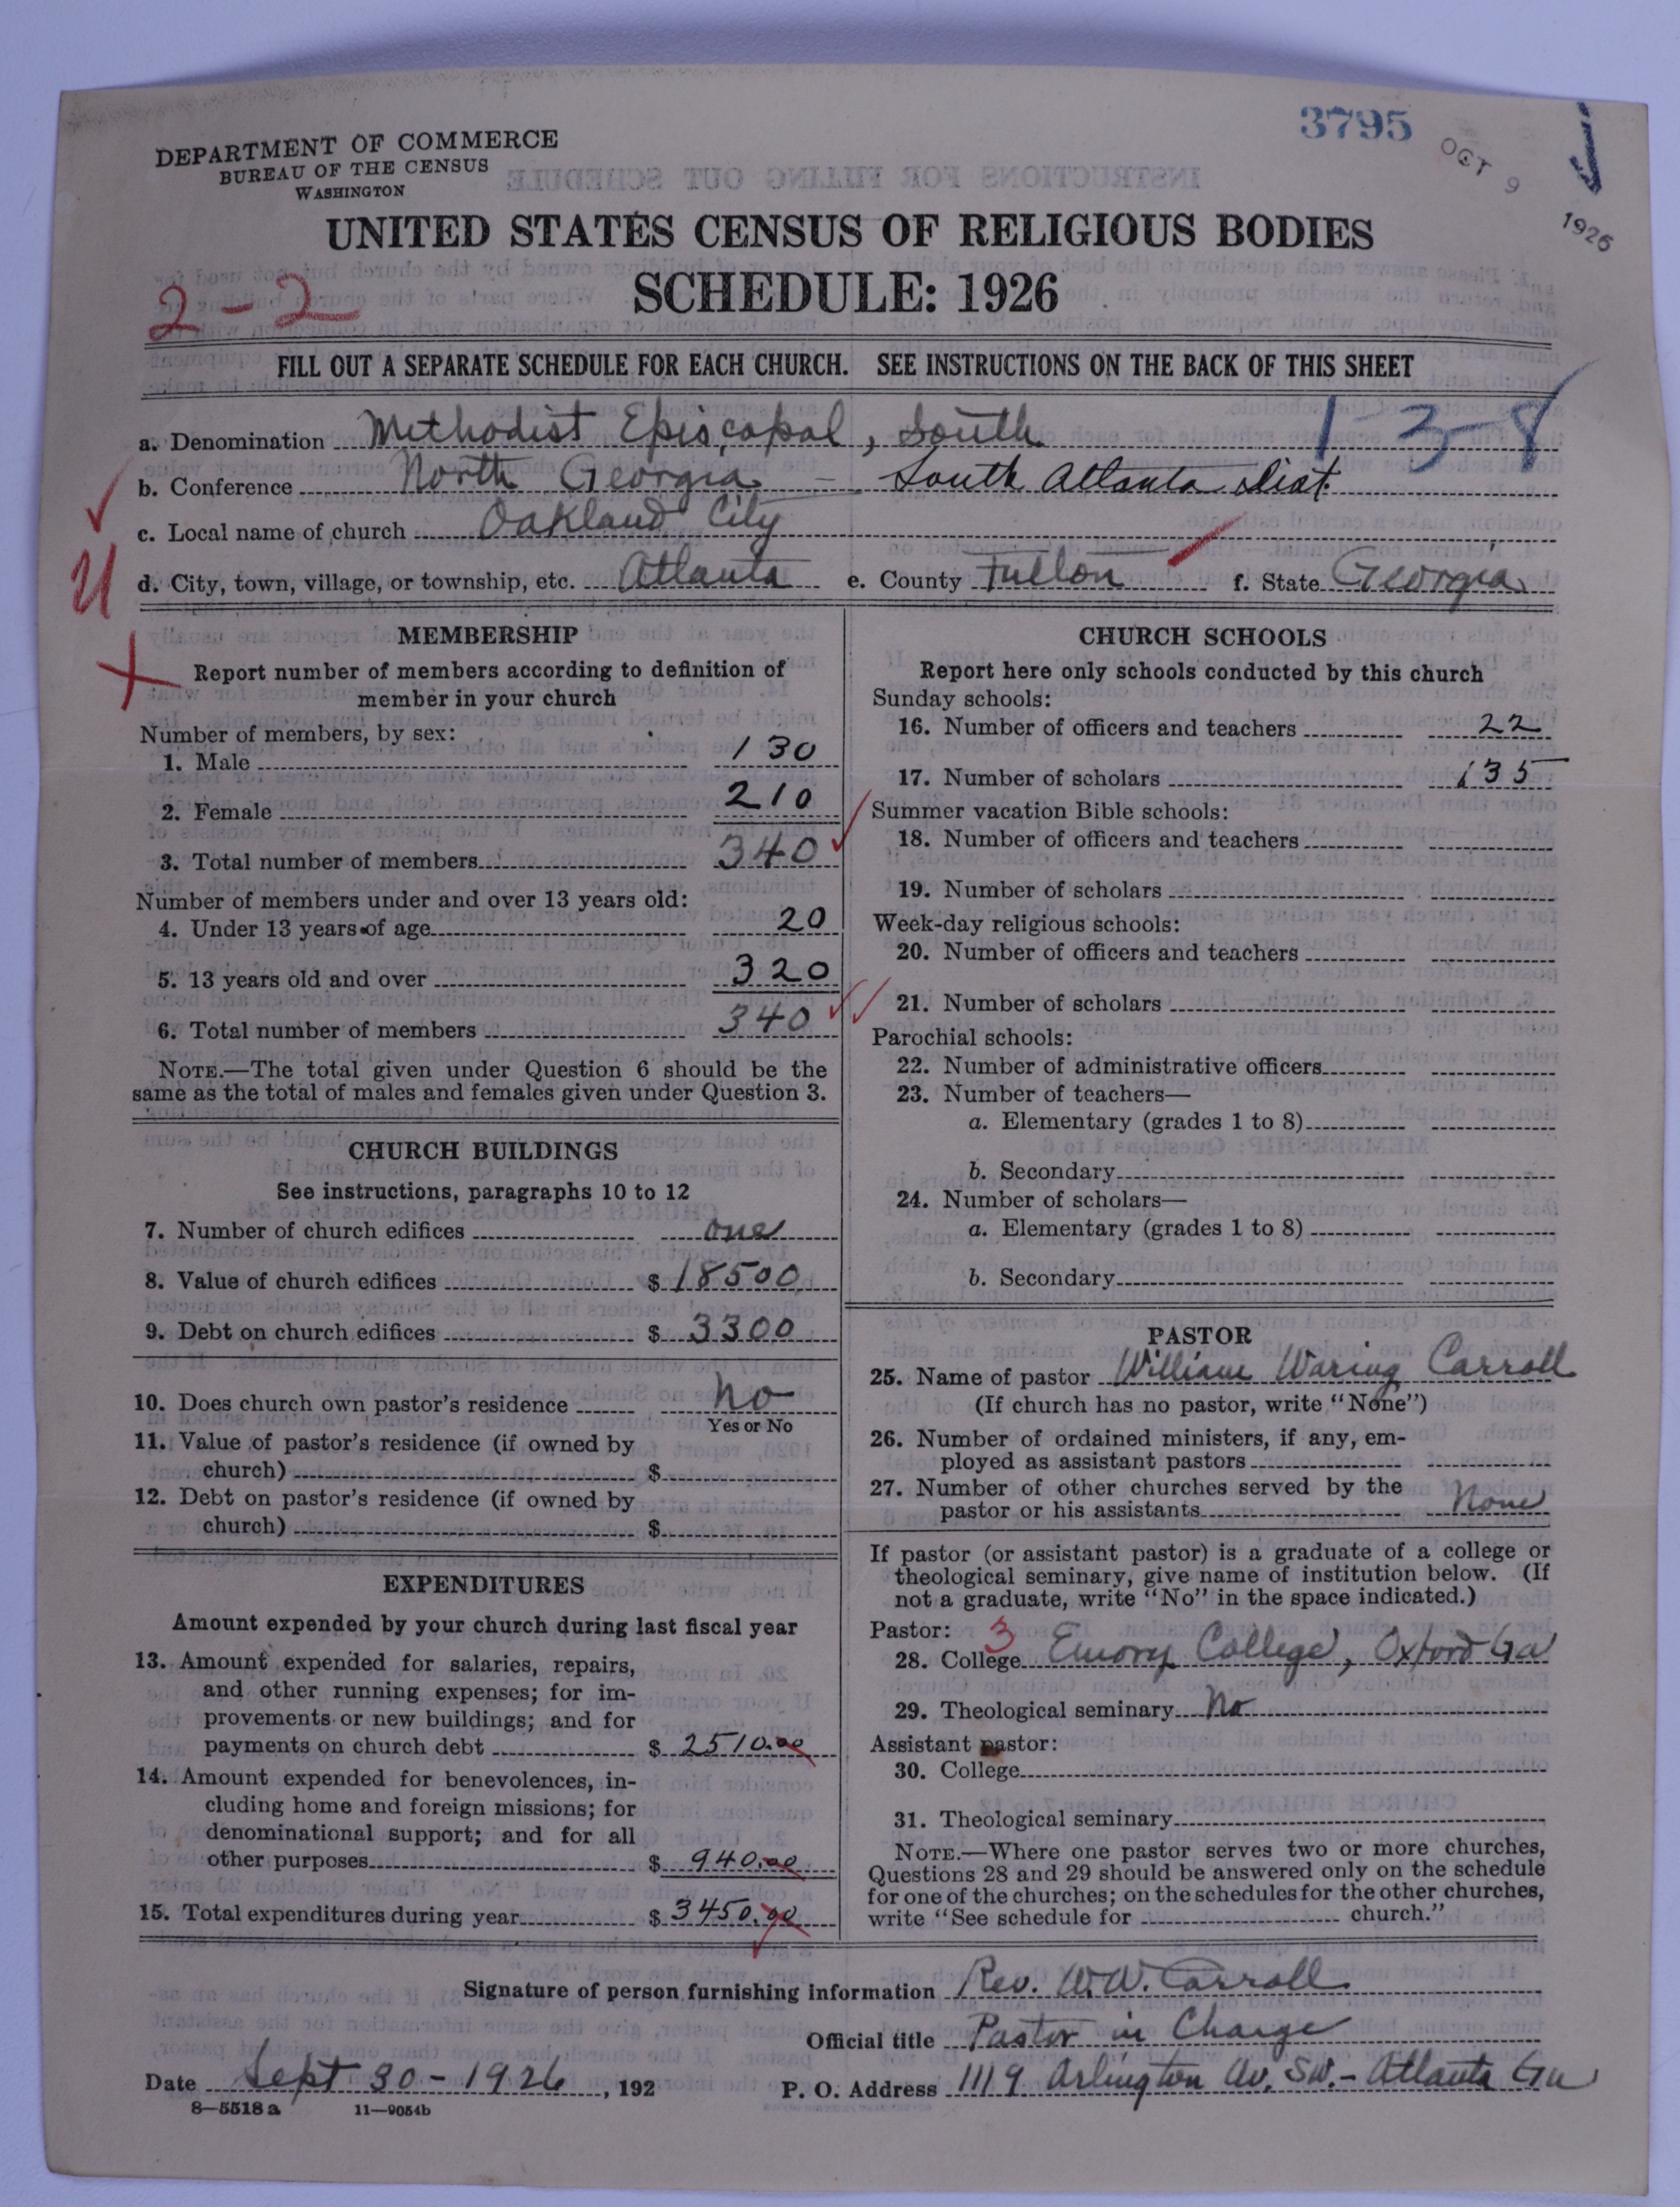 3795
OCT 9 1926
DEPARTMENT OF COMMERCE
BUREAU OF THE CENSUS
WASHINGTON
UNITED STATES CENSUS OF RELIGIOUS BODIES
SCHEDULE: 1926
2-2
FILL OUT A SEPARATE SCHEDULE FOR EACH CHURCH. SEE INSTRUCTIONS ON THE BACK OF THIS SHEET
1-3-8
a. Denomination Methodist Episcopal, South
b. Conference North Georgia - South Atlanta Dist.
c. Local name of church Oakland City
d. City, town, village, or township, etc. Atlanta e. County Fulton f. State Georgia
MEMBERSHIP
Report number of members according to definition of
member in your church
Number of members, by sex:
1. Male 130
2. Female 210
3. Total number of members 340
Number of members under and over 13 years old:
4. Under 13 years of age 20
5. 13 years old and over 320
6. Total number of members 340
NOTE.—The total given under Question 6 should be the
same as the total of males and females given under Question 3.
CHURCH BUILDINGS
See instructions, paragraphs 10 to 12
7. Number of church edifices one
8. Value of church edifices $ 18500
9. Debt on church edifices $ 3300
10. Does church own pastor's residence No
Yes or No
11. Value of pastor's residence (if owned by
church) $
12. Debt on pastor's residence (if owned by
church) $
EXPENDITURES
Amount expended by your church during last fiscal year
13. Amount expended for salaries, repairs,
and other running expenses; for im-
provements or new buildings; and for
payments on church debt $ 2510.00
14. Amount expended for benevolences, in-
cluding home and foreign missions; for
denominational support; and for all
other purposes $ 940.00
15. Total expenditures during year $ 3450.00
CHURCH SCHOOLS
Report here only schools conducted by this church
Sunday schools:
16. Number of officers and teachers 22
17. Number of scholars 135
Summer vacation Bible schools:
18. Number of officers and teachers
19. Number of scholars
Week-day religious schools:
20. Number of officers and teachers
21. Number of scholars
Parochial schools:
22. Number of administrative officers
23. Number of teachers—
a. Elementary (grades 1 to 8)
b. Secondary
24. Number of scholars—
a. Elementary (grades 1 to 8)
b. Secondary
PASTOR
25. Name of pastor William Waring Carroll
(If church has no pastor, write "None")
26. Number of ordained ministers, if any, em-
ployed as assistant pastors
27. Number of other churches served by the
pastor or his assistants None
If pastor (or assistant pastor) is a graduate of a college or
theological seminary, give name of institution below. (If
not a graduate, write "No" in the space indicated.)
Pastor: 3
28. College Emory College, Oxford Ga
29. Theological seminary No
Assistant pastor:
30. College
31. Theological seminary
NOTE.—Where one pastor serves two or more churches,
Questions 28 and 29 should be answered only on the schedule
for one of the churches; on the schedules for the other churches,
write "See schedule for church."
Signature of person furnishing information Rev. W.W. Carroll
Official title Pastor in Charge
Date Sept 30-1926, 192 P. O. Address 1119 Arlington Av. SW.- Atlanta Ga
8—5518 a 11—9054b